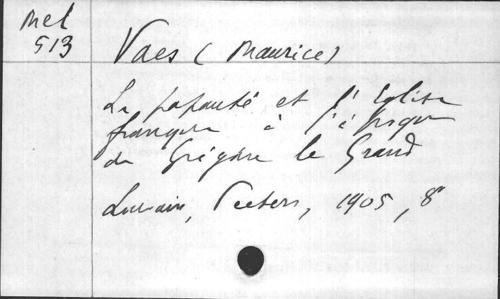 Mel
513
Vaes (Maurice)
La papauté et l'Église
franque à l'époque
de Grégoire le Grand
Louvain, Peeters, 1905, 8°